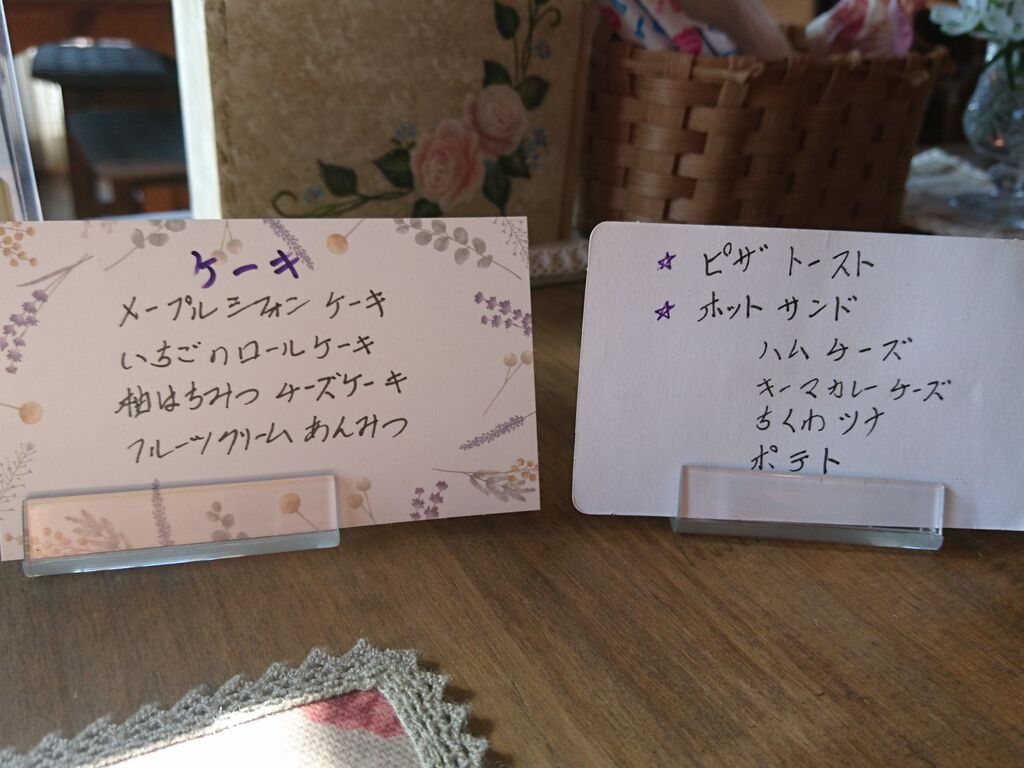 ケーキ
メープルシフォン ケーキ
いちごのロールケーキ
柚はちみつ チーズケーキ
フルーツクリームあんみつ
☆ ピザ トースト
☆ ホットサンド
ハムチーズ
キーマカレーチーズ
ちくわツナ
ポテト